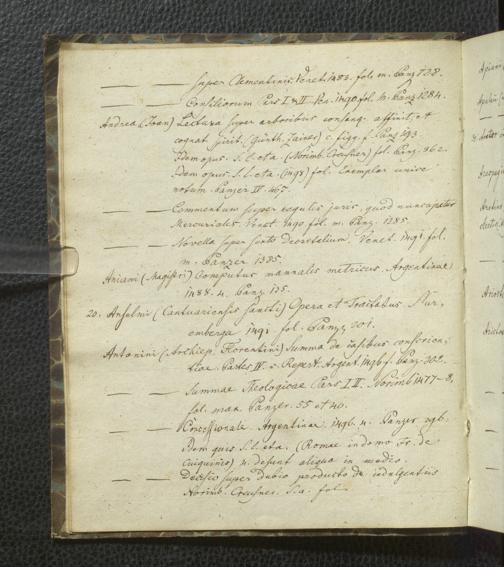 — — super Clementinis. Venet. 1483. fol. m. Panz. 728.
— — Consiliorum Pars I & II. Pen. 1490 fol. m. Panz. 1284.
Andrea (Joan) Lectura super arboribus consang. affinit. et
cognat. spirit. (Günth. Zainer) c. figg. f. Panz. 293
Idem opus. S. l. et a. (Norimb. Creusner) fol. Panz. 362.
Idem opus. S. l. et a. (1478) fol. Exemplar unice
notum. Panzer IV. 467.
— — Commentum super regulis juris, quod nuncupatur
Mercuriales. Venet. 1490 fol. m. Panz. 1285
— — Novella super sexto decretalium. Venet. 1491. fol.
m. Panzer 1385.
Aniani (Magistri) Computus manualis metricus. Argentinae
1488. 4. Panz. 135.
20. Anselmi (Cantuariensis sancti) Opera et Tractatus. Nur,
emberga 1491 fol. Panz. 301.
Antonini (Archiep. Florentini) Summa de casibus conscien,
tiae. Partes IV. c. Repert. Argent. 1496 f. Panz. 302.
— — Summae Theologicae Pars I II. Norimb 1477–8,
fol. max. Panzer. 55 et 40.
— — Confessionale. Argentinae. 1496. 4. Panzer 496.
Idem opus. S. l. et a. (Romae in domo Fr. de
Cinquinis) 4. desunt aliqua in medio.
— — Decisio super dubio producto de indulgentiis
Norimb. Creusner. S. a. fol.
Apiani